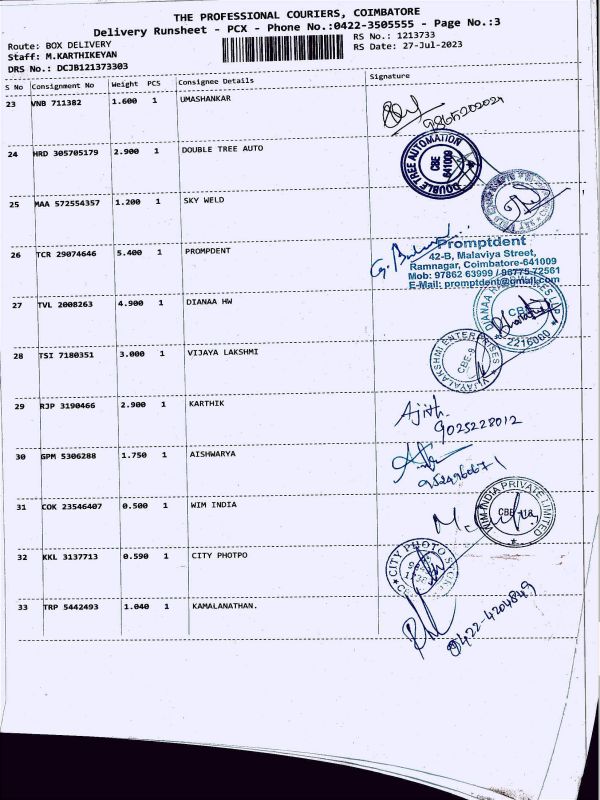 THE PROFESSIONAL COURIERS, COIMBATORE
Delivery Runsheet - PCX - Phone No.:0422-3505555 - Page No.:3
Route: BOX DELIVERY
RS No.: 1213733
Staff: M.KARTHIKEYAN
RS Date: 27-Jul-2023
DRS No.: DCJB121373303
S No Consignment No Weight PCS Consignee Details Signature
23 VNB 711382 1.600 1 UMASHANKAR
24 HRD 305705179 2.900 1 DOUBLE TREE AUTO
DOUBLE TREE AUTOMATION
CBE
641000
25 MAA 572554357 1.200 1 SKY WELD
26 TCR 29074646 5.400 1 PROMPDENT
Promptdent
42-B, Malaviya Street,
Ramnagar, Coimbatore-641009
Mob: 97862 63999 / 86775 72561
E-Mail: promptdent@gmail.com
27 TVL 2008263 4.900 1 DIANAA HW
DIANAA
CBE
Bharathi
28 TSI 7180351 3.000 1 VIJAYA LAKSHMI
VIJAYALAKSHMI ENTERPRISES
CBE-9
29 RJP 3190466 2.900 1 KARTHIK
Ajith
9025228012
30 GPM 5306288 1.750 1 AISHWARYA
31 COK 23546407 0.500 1 WIM INDIA
WIM INDIA PRIVATE LIMITED
CBE
32 KKL 3137713 0.590 1 CITY PHOTPO
CITY PHOTO
33 TRP 5442493 1.040 1 KAMALANATHAN.
0422-4204849